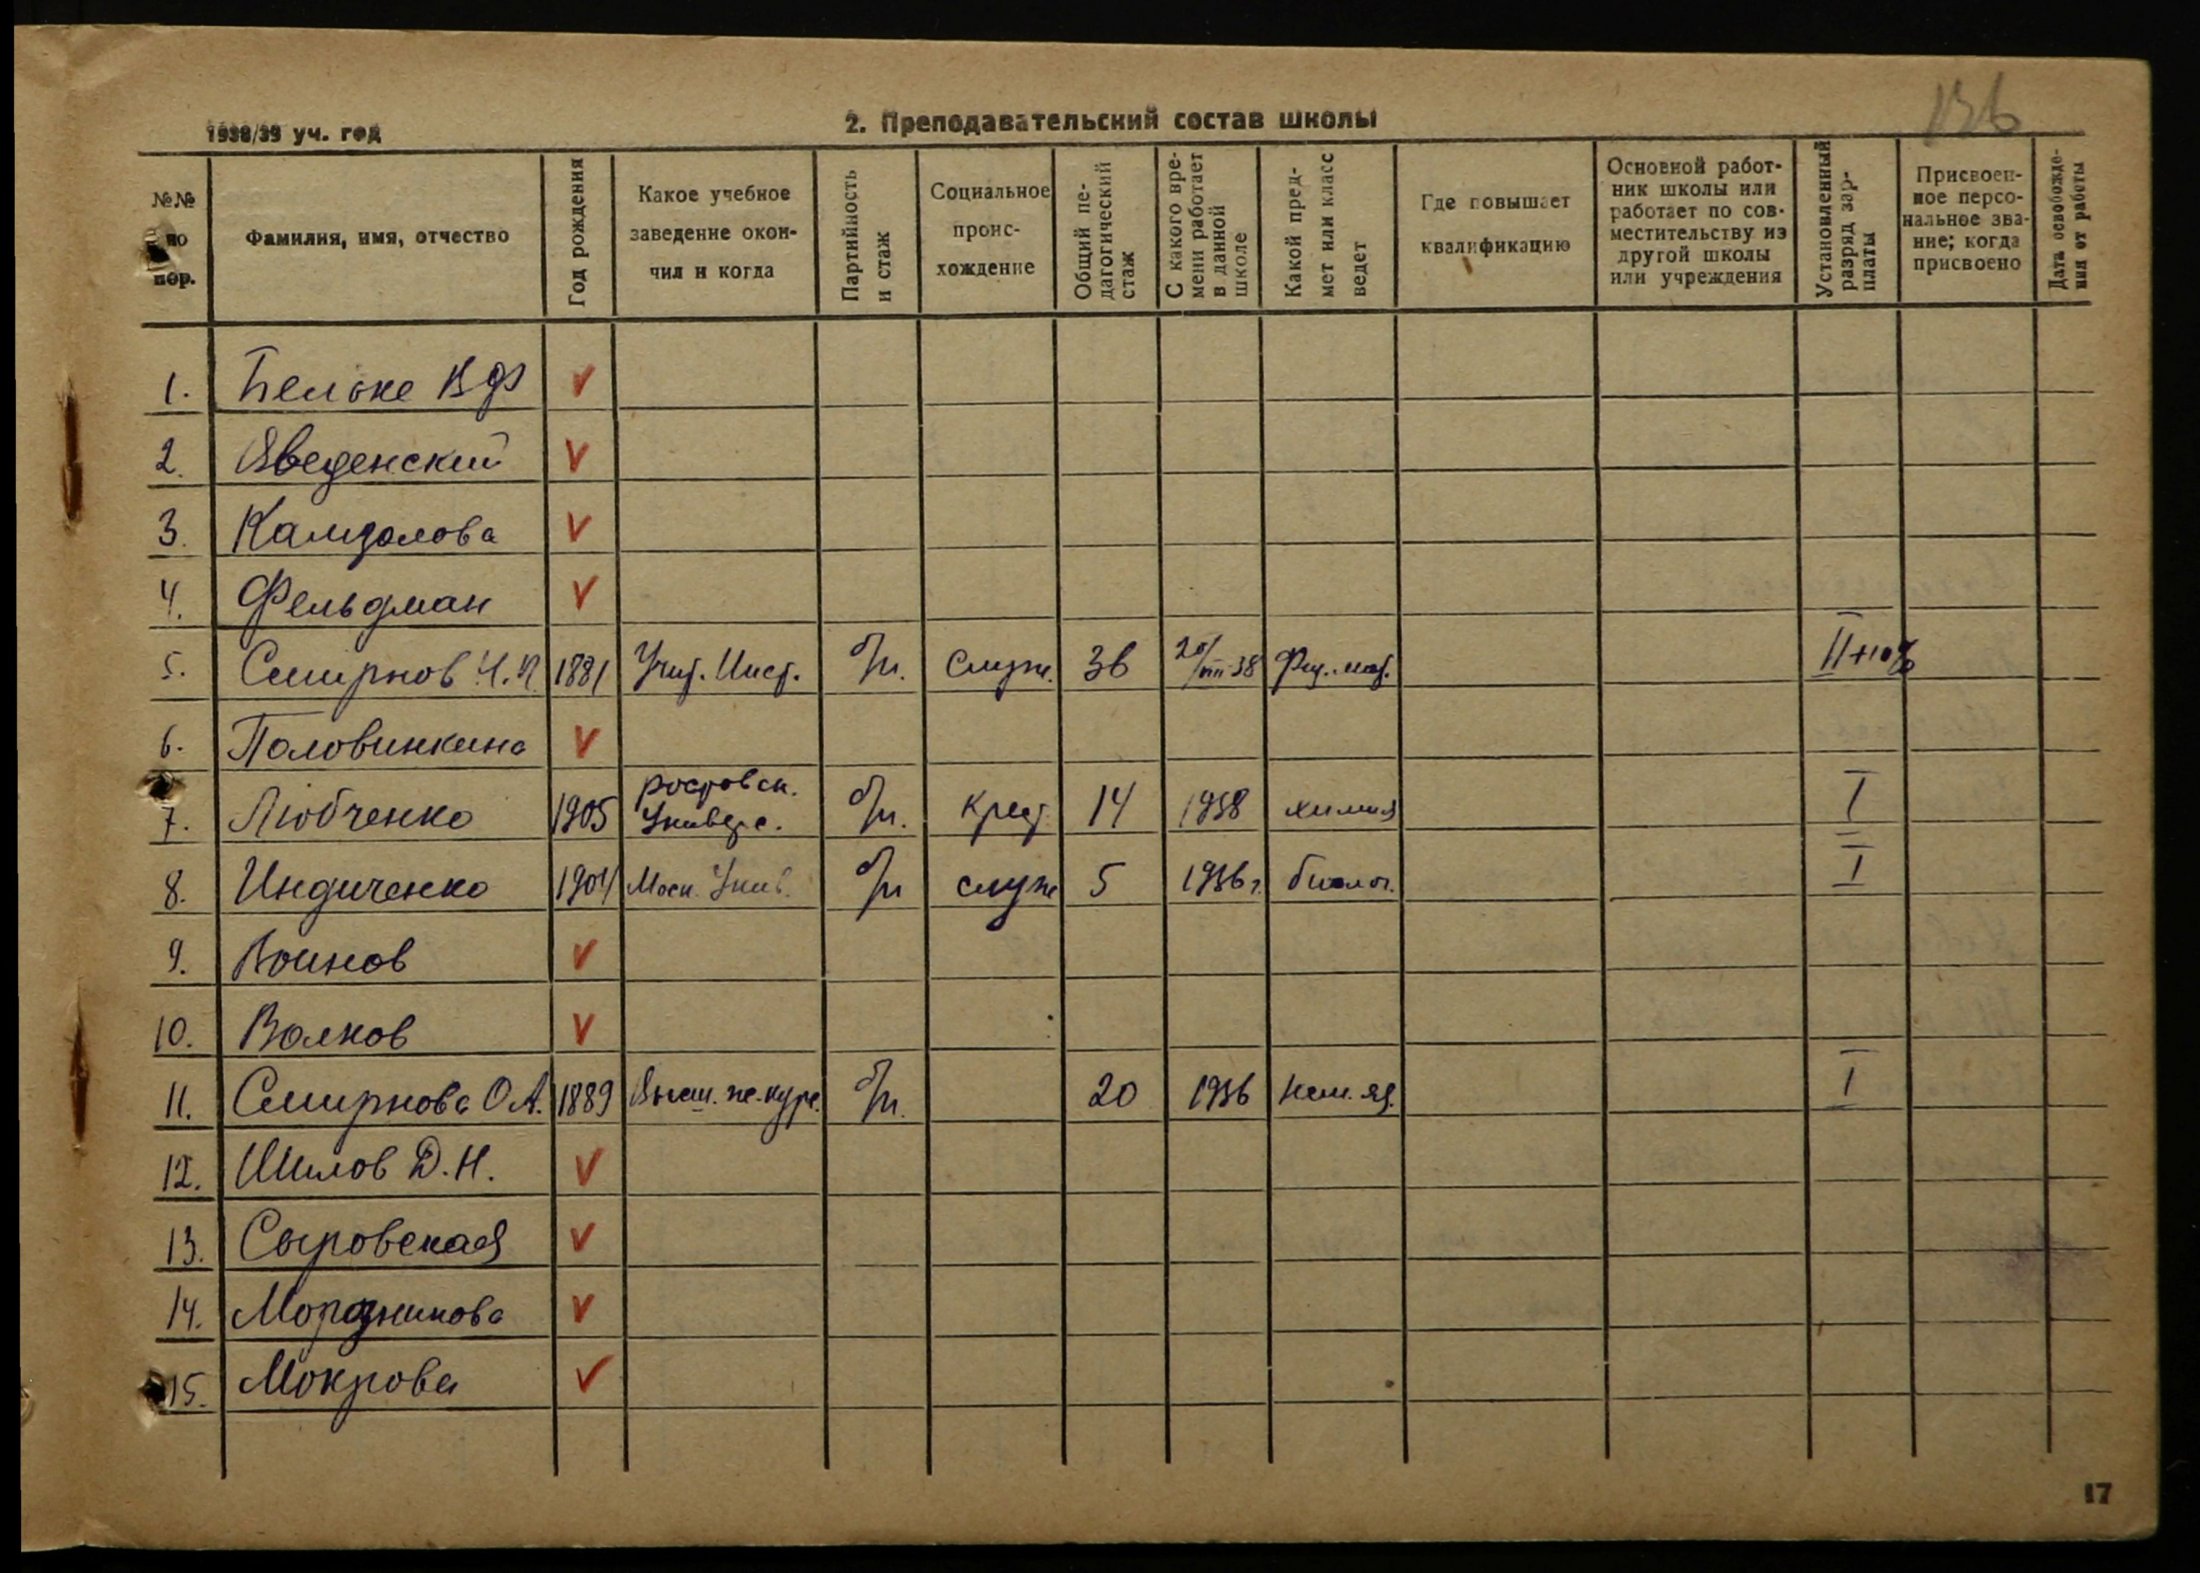 136
1938/39 уч. год
2. Преподавательский состав школы
№№ по пор.
Фамилия, имя, отчество
Год рождения
Какое учебное заведение окончил и когда
Партийность и стаж
Социальное происхождение
Общий педагогический стаж
С какого времени работает в данной школе
Какой предмет или класс ведет
Где повышает квалификацию
Основной работник школы или работает по совместительству из другой школы или учреждения
Установленный разряд зарплаты
Присвоенное персональное звание; когда присвоено
Дата освобождения от работы
1. Бельке В Ф
2. Введенский
3. Камзолова
4. Фельдман
5. Смирнов Н. П. 1881 Учит. Инст. б/п. служ. 36 20/VIII-38 Физ. мат. II+10%
6. Половинкина
7. Любченко 1905 Ростовск. Универс. б/п. Крест. 14 1938 химия I
8. Индиченко 1904 Моск. Унив. б/п служ 5 1936 г. биолог. I
9. Воинов
10. Волков
11. Смирнова О.А. 1889 Высш. же. курс. б/п. 20 1936 нем. яз. I
12. Шилов Д. Н.
13. Сыровская
14. Морозникова
15. Мокрова
17